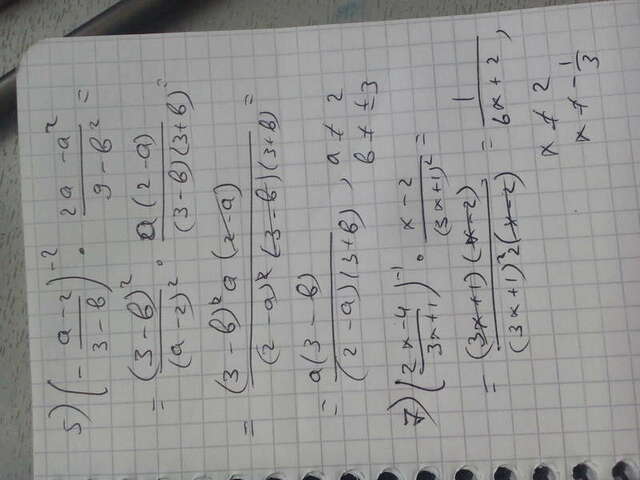 5) (- (a-2)/(3-b))^-2 · (2a-a²)/(9-b²) =
= (3-b)²/(a-2)² · a(2-a)/((3-b)(3+b)) =
= (3-b)² a (2-a)/((2-a)² (3-b)(3+b)) =
= a(3-b)/((2-a)(3+b)), a ≠ 2
b ≠ ±3
7) ((2x-4)/(3x+1))^-1 · (x-2)/(3x+1)² =
= (3x+1)(x-2)/((3x+1)² 2(x-2)) = 1/(6x+2),
x ≠ 2
x ≠ -1/3